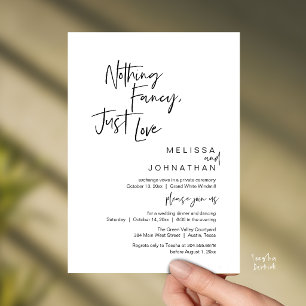 Nothing
Fancy,
Just Love
MELISSA
and
JOHNATHAN
exchange vows in a private ceremony
October 13, 20xx | Grand White Windmill
please join us
for a wedding dinner and dancing
Saturday | October 14, 20xx | @6:00 in the evening
The Green Valley Courtyard
304 Main West Street | Austin, Texas
Regrets only to Teesha at 304.555.5575
before August 1, 20xx
Teesha